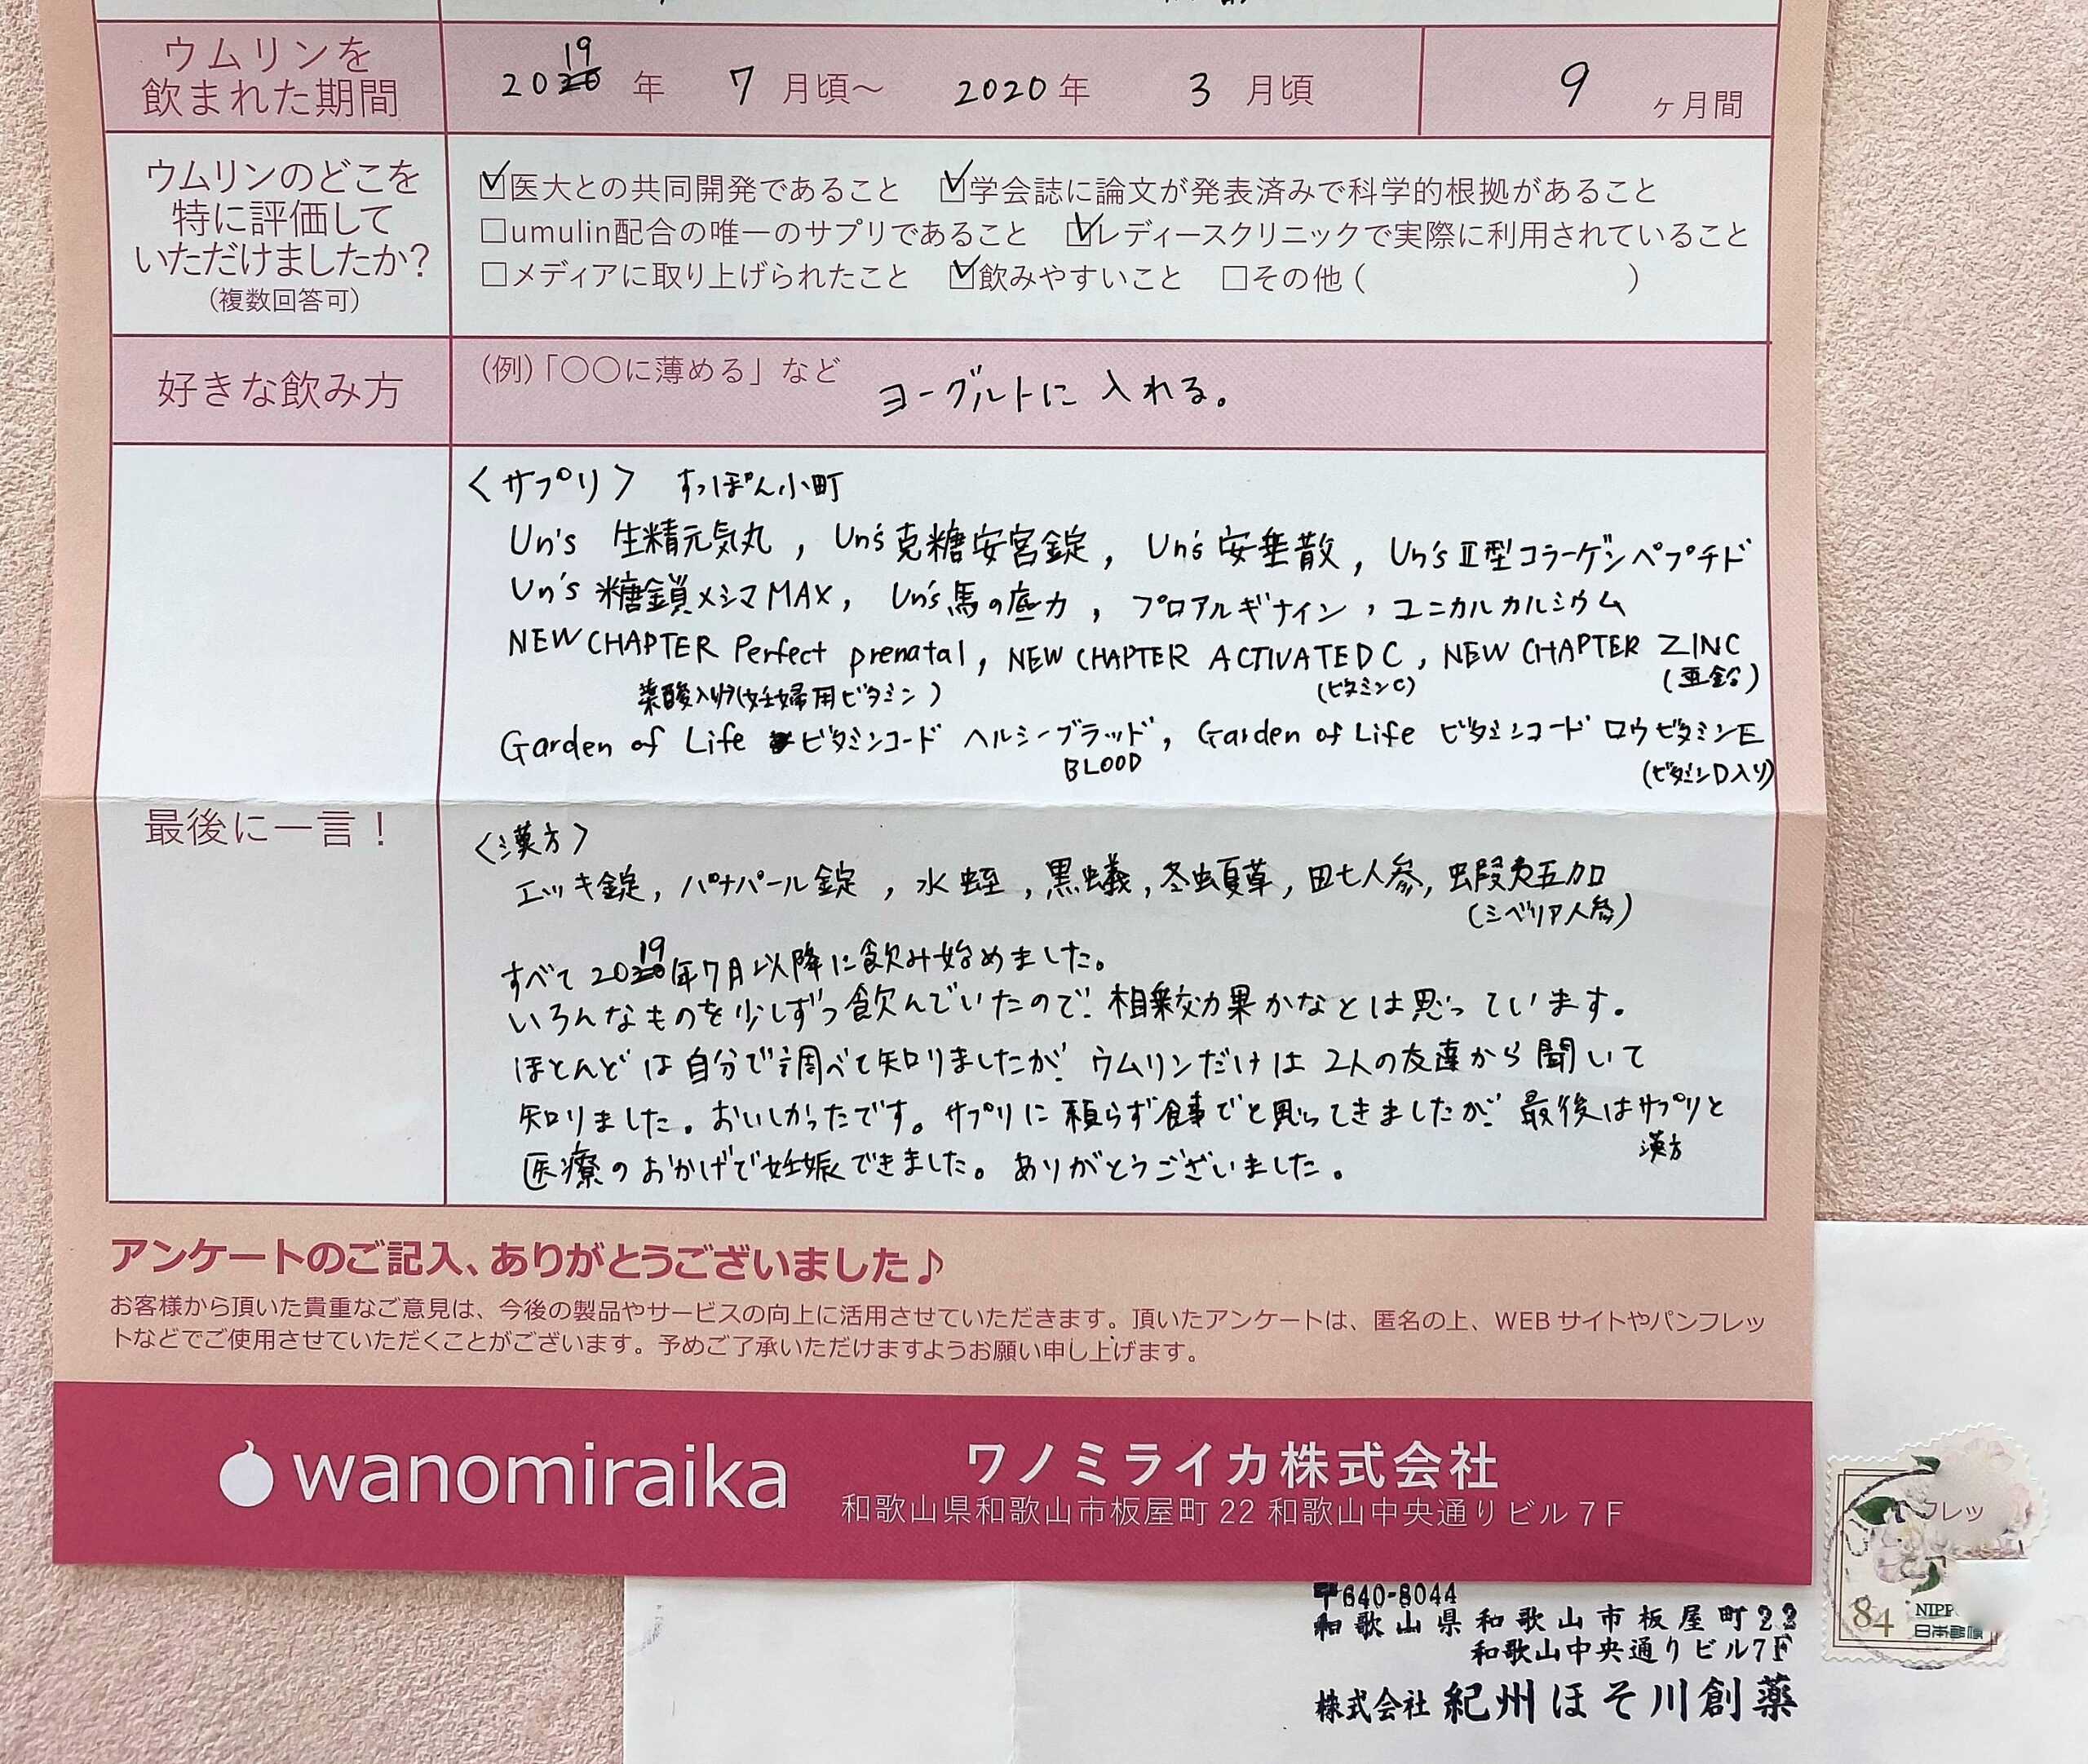 ウムリンを
飲まれた期間
2019年 7月頃～ 2020年 3月頃 9ヶ月間
ウムリンのどこを
特に評価して
いただけましたか？
（複数回答可）
☑医大との共同開発であること ☑学会誌に論文が発表済みで科学的根拠があること
□umulin配合の唯一のサプリであること ☑レディースクリニックで実際に利用されていること
□メディアに取り上げられたこと ☑飲みやすいこと □その他（ ）
好きな飲み方
（例）「○○に薄める」など ヨーグルトに入れる。
最後に一言！
〈サプリ〉 すっぽん小町
Un's 生精元気丸, Un's克糖安宮錠, Un's安垂散, Un'sⅡ型コラーゲンペプチド
Un's 糖鎖メシマMAX, Un's馬の底力, プロアルギナイン, ユニカルカルシウム
NEW CHAPTER Perfect prenatal, NEW CHAPTER ACTIVATED C, NEW CHAPTER ZINC
葉酸入り(妊婦用ビタミン) (ビタミンC) (亜鉛)
Garden of Life ビタミンコード ヘルシーブラッド, Garden of Life ビタミンコード ロウビタミンE
BLOOD (ビタミンD入り)
〈漢方〉
エッキ錠, パナパール錠, 水蛭, 黒蟻, 冬虫夏草, 田七人参, 五加
(シベリア人参)
すべて2019年7月以降に飲み始めました。
いろんなものを少しずつ飲んでいたので、相乗効果かなとは思っています。
ほとんどは自分で調べて知りましたが、ウムリンだけは2人の友達から聞いて
知りました。おいしかったです。サプリに頼らず食事でと思ってきましたが、最後はサプリと
漢方
医療のおかげで妊娠できました。ありがとうございました。
アンケートのご記入、ありがとうございました♪
お客様から頂いた貴重なご意見は、今後の製品やサービスの向上に活用させていただきます。頂いたアンケートは、匿名の上、WEBサイトやパンフレッ
トなどでご使用させていただくことがございます。予めご了承いただけますようお願い申し上げます。
wanomiraika
ワノミライカ株式会社
和歌山県和歌山市板屋町22 和歌山中央通りビル7F
フレッ
84 NIPP
〒640-8044
和歌山県和歌山市板屋町22
和歌山中央通りビル7F
株式会社 紀州ほそ川創薬